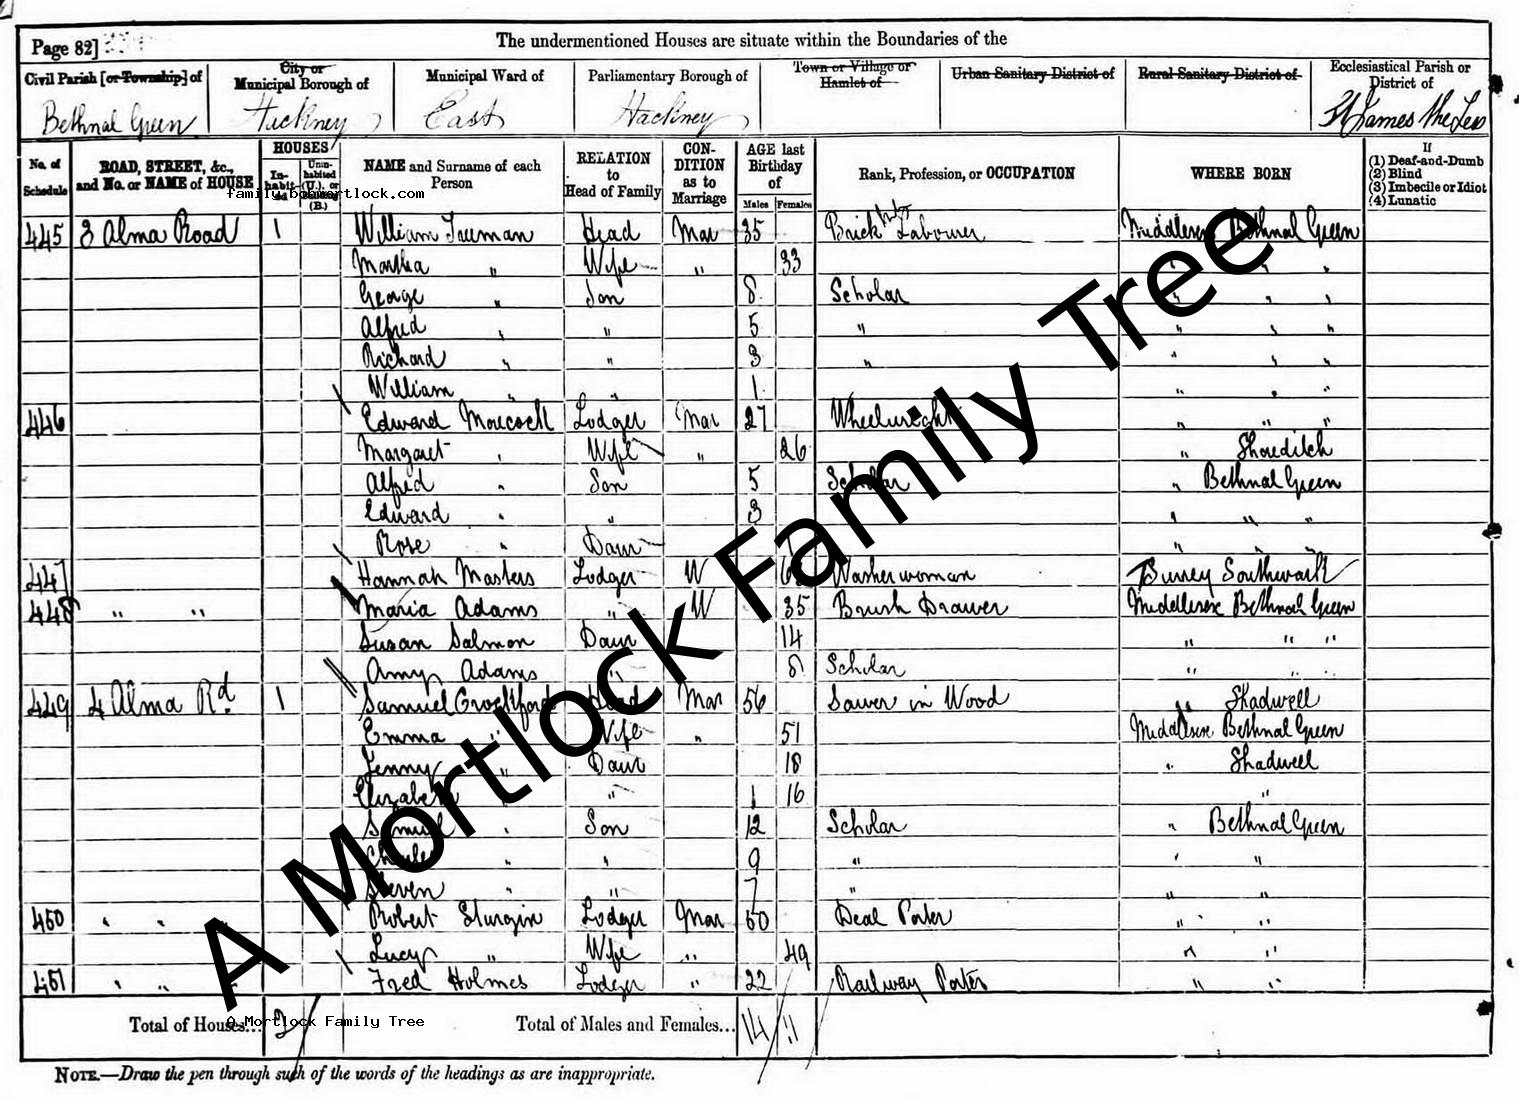 Page 82]
The undermentioned Houses are situate within the Boundaries of the
Civil Parish [or Township] of
City or Municipal Borough of
Municipal Ward of
Parliamentary Borough of
Town or Village or Hamlet of
Urban Sanitary District of
Rural Sanitary District of
Ecclesiastical Parish or District of
Bethnal Green Hackney East Hackney St James the Less
No. of Schedule
ROAD, STREET, &c., and No. or NAME of HOUSE
HOUSES
In-habit-ed
Unin-habited (U.), or Building (B.)
NAME and Surname of each Person
RELATION to Head of Family
CON-DITION as to Marriage
AGE last Birthday of
Males Females
Rank, Profession, or OCCUPATION
WHERE BORN
If
(1) Deaf-and-Dumb
(2) Blind
(3) Imbecile or Idiot
(4) Lunatic
family.bobmortlock.com
445 3 Alma Road 1 William Head Mar 35 Brick Labourer Middlesex Bethnal Green
Martha " Wife " 33 " " "
George " Son 8 Scholar " " "
Alfred " " 5 " " " "
Richard " " 3 " " " "
William " " 1 " " "
446 Edward Morcock Lodger Mar 27 Wheelwright " " "
Margaret " Wife " 26 " Shoreditch
Alfred " Son 5 Scholar " Bethnal Green
Edward " " 3 " " "
Rose " Daur " " "
447 Hannah Masters Lodger W Washerwoman Surrey Southwark
448 " " Maria Adams " W 35 Brush Drawer Middlesex Bethnal Green
Susan Salmon Daur 14 " " "
Amy Adams " 8 Scholar " " "
449 4 Alma Rd 1 Samuel Crockford Head Mar 56 Sawer in Wood " Shadwell
Emma " Wife " 51 Middlesex Bethnal Green
Jenny " Daur 18 " Shadwell
Elizabeth " " 16 "
Samuel " Son 12 Scholar " Bethnal Green
Charles " " 9 " " "
Steven " " 7 " " "
450 " " Robert Sturgin Lodger Mar 50 Deal Porter " "
Lucy " Wife " 49 " "
451 " " Fred Holmes Lodger " 22 Railway Porter " "
Total of Houses... 2 Total of Males and Females... 14 11
A Mortlock Family Tree
NOTE.—Draw the pen through such of the words of the headings as are inappropriate.
A Mortlock Family Tree